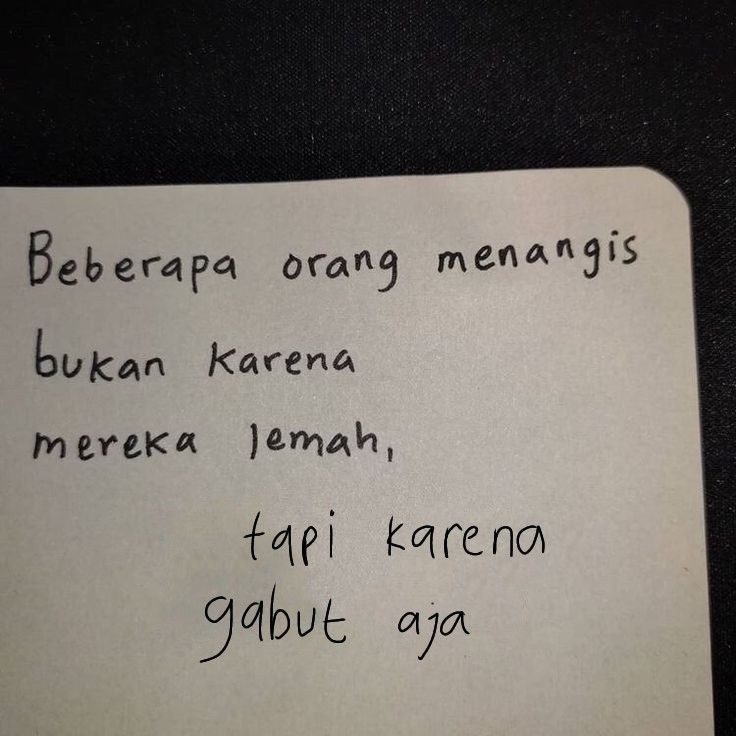 Beberapa orang menangis
bukan karena
mereka lemah,
tapi karena
gabut aja